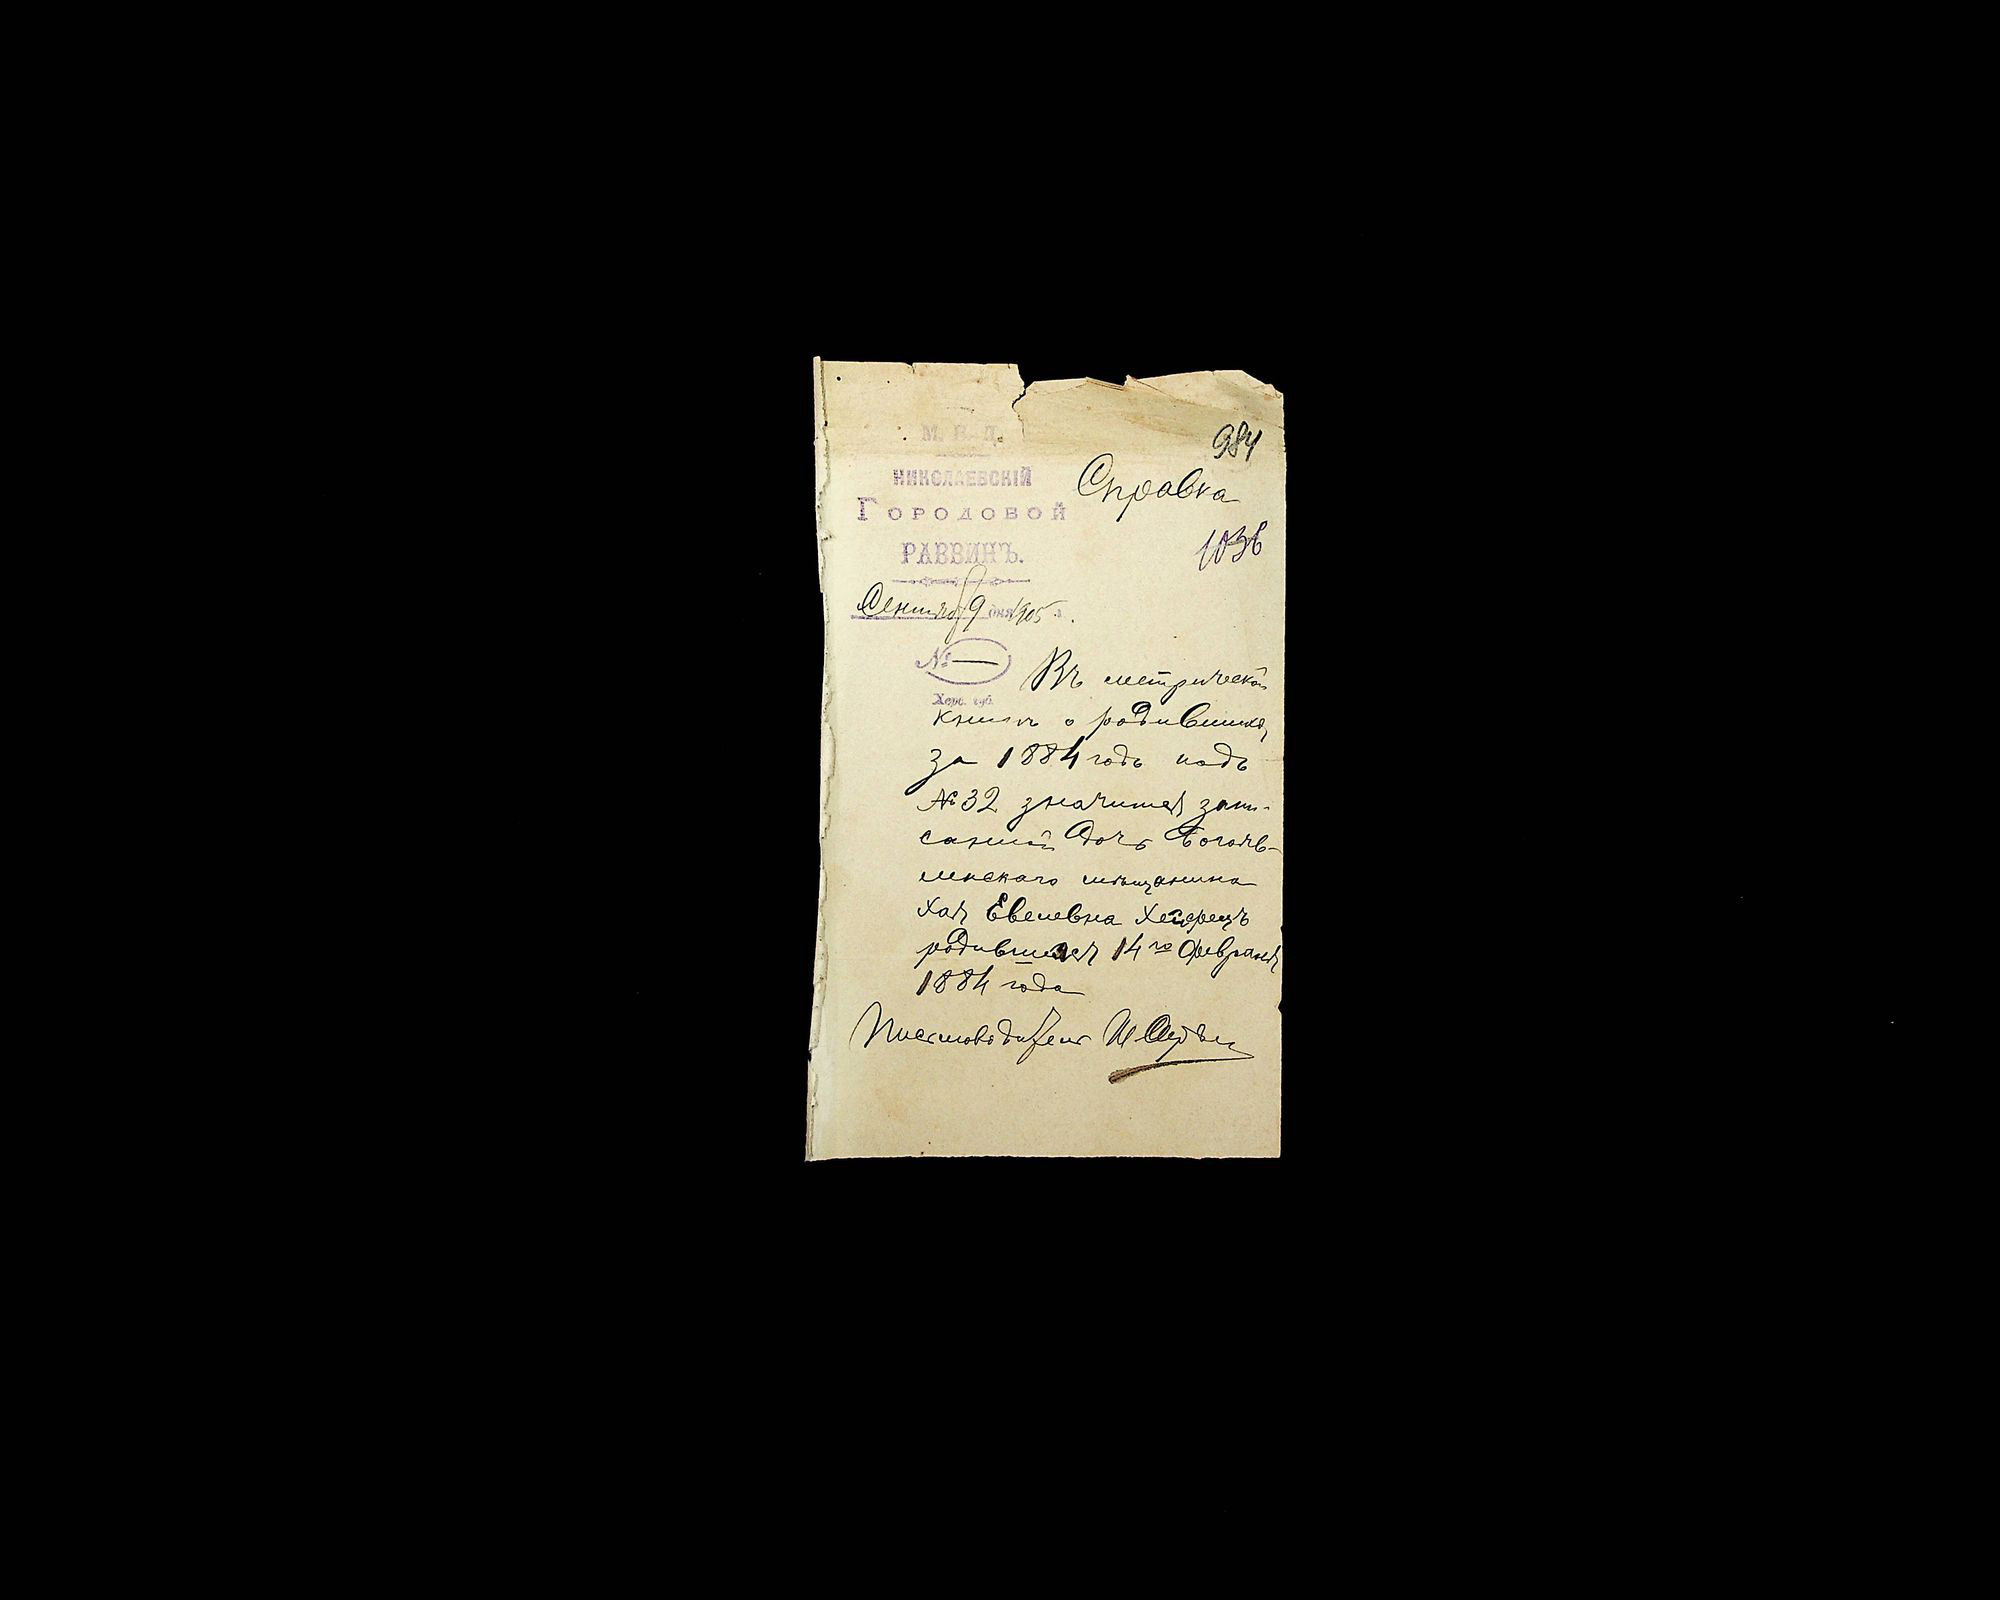 984
М. В. Д.
НИКОЛАЕВСКІЙ
ГОРОДОВОЙ
РАВВИНЪ.
Справка
1036
Сентября 9 дня 1905 г.
№ —
Херс. губ.
Въ метрической
книгѣ о родившихся
за 1884 годъ подъ
№ 32 значится запи-
санной дочь
мѣщанина
Хая Евелевна Хейфецъ
родившаяся 14го Февраля
1884 года
Письмоводитель И